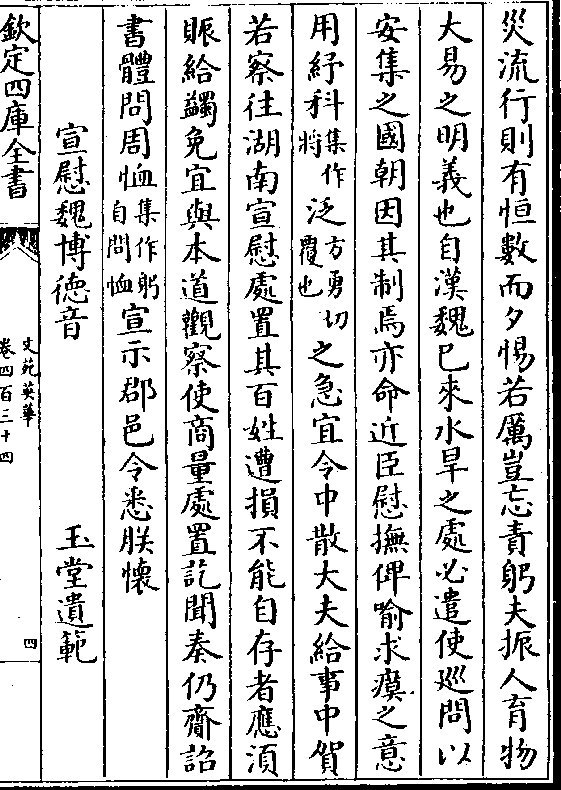 災流行則有恒數而夕惕若厲豈忘責躬夫振人育物
大易之明義也自漢魏已來水旱之處必遣使廵問以
安集之國朝因其制焉亦命近臣慰撫俾喻求瘼之意
用紓科集作將泛方勇切覆也之急宜令中散大夫給事中賀
若察往湖南宣慰處置其百姓遭損不能自存者應須
賑給蠲免宜與本道觀察使商量處置訖聞奏仍齎詔
書體問周恤集作躬自問恤宣示郡邑令悉朕懷
宣慰魏博德音 玉堂遺範
欽定四庫全書
文苑英華
卷四百三十四
四